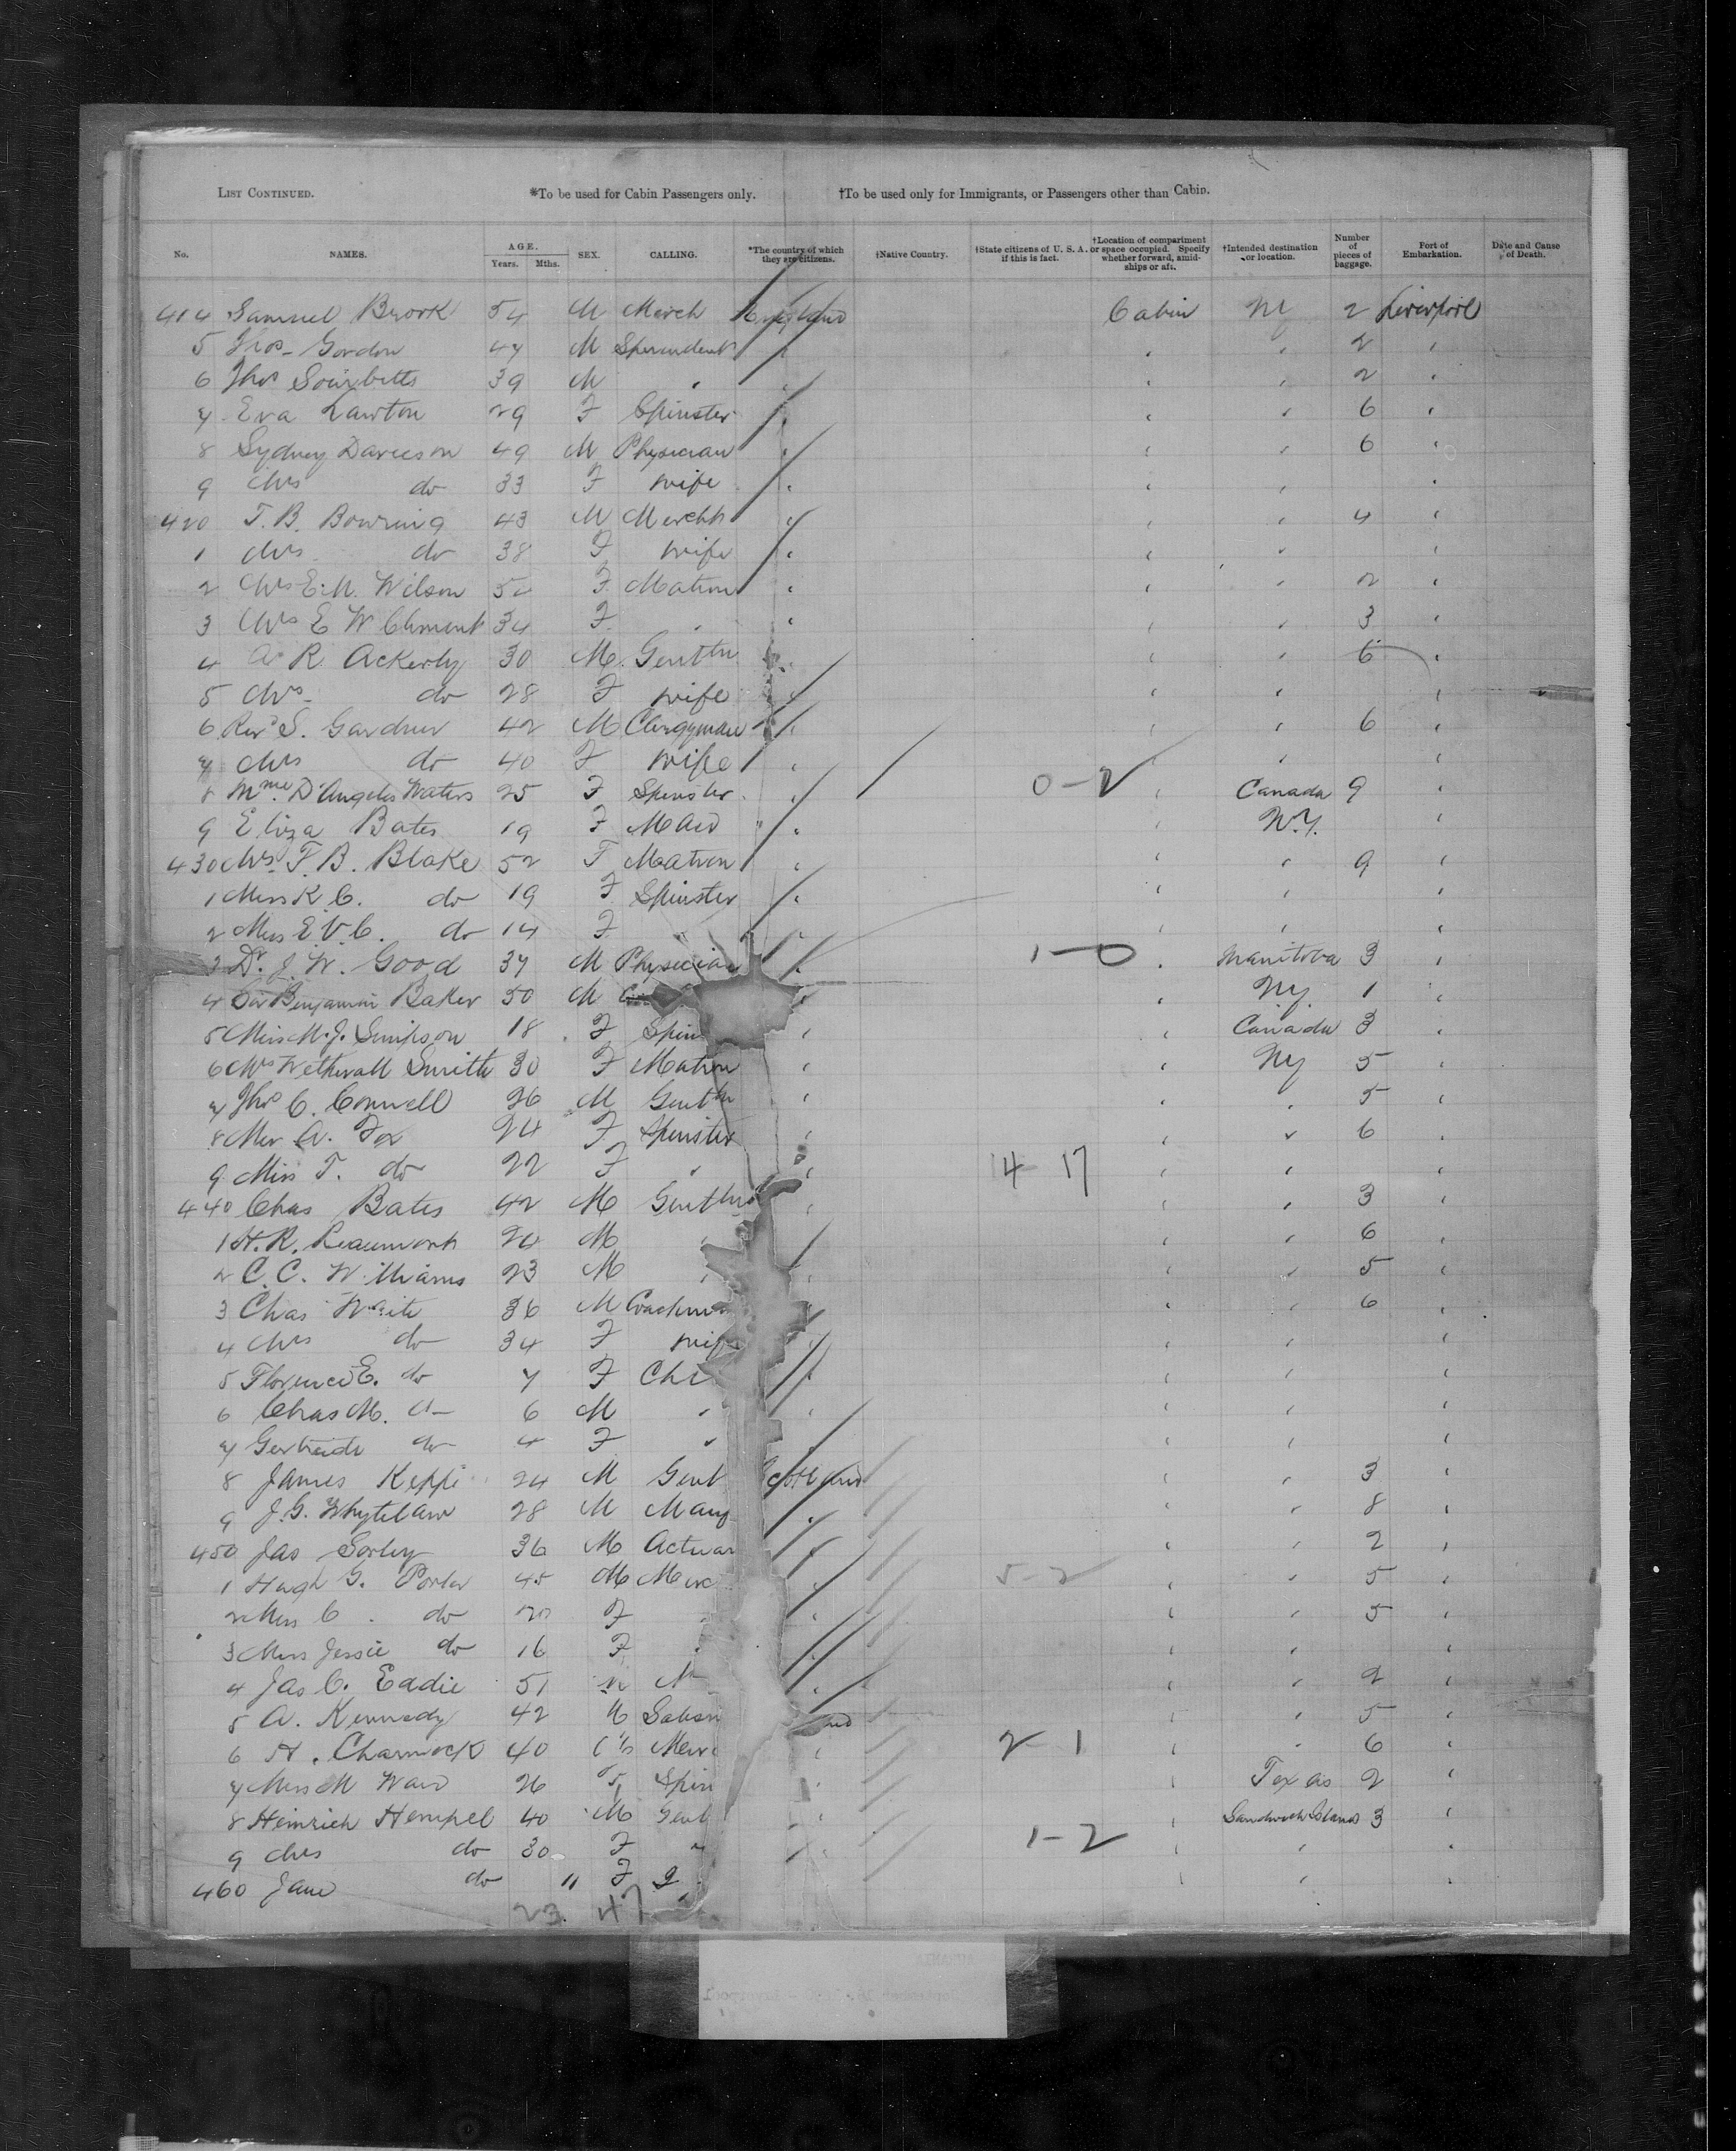 LIST CONTINUED. *To be used for Cabin Passengers only. †To be used only for Immigrants, or Passengers other than Cabin.
No. NAMES. AGE. Years. Mths. SEX. CALLING. *The country of which they are citizens. †Native Country. †State citizens of U. S. A. if this is fact. †Location of compartment or space occupied. Specify whether forward, amidships or aft. †Intended destination or location. Number of pieces of baggage. Port of Embarkation. Date and Cause of Death.
414 Samuel Brook 54 M Merch England Cabin NY 2 Liverpool
5 Gordon 47 M " " " 2 "
6 Thos 39 M " " " " 2 "
7 Eva Lawton 29 F Spinster " " " 6 "
8 Sydney Davieson 49 M Physician " " " 6 "
9 Mrs do 33 F wife " " " "
420 T. B. Bowring 43 M Mercht " " " 4 "
1 Mrs do 38 F wife " " " "
2 Mrs E. M. Wilson 5 F Matron " " " 2 "
3 Mrs E W Clement 34 F " " " " 3 "
4 A R. Ackerly 30 M Gentln " " " 6 "
5 Mrs do 28 F wife " " " "
6 Revd S. Gardner 42 M Clergyman " " " 6 "
7 Mrs do 40 F wife " " " "
8 Mme D'Angelis Waters 25 F Spinster " 0-2 " Canada 9 "
9 Eliza Bates 19 F Maid " " N.Y. "
430 Mrs F. B. Blake 52 F Matron " " " 9 "
1 Miss K. C. do 19 F Spinster " " " "
2 Miss E. V. C. do 14 F " " " "
3 Dr. J. W. Good 37 M Physician " 1-0 " Manitoba 3 "
4 Sir Benjamin Baker 50 M " " NY. 1 "
5 Miss M. J. Simpson 18 F Spin " " Canada 3 "
6 Mrs Wetherall Smith 30 F Matron " " NY 5 "
7 Thos C. Connell 26 M Gentln " " " 5 "
8 Miss A. Fox 24 F Spinster " " " 6 "
9 Miss T. do 22 F " " 14-17 " " "
440 Chas Bates 42 M Gentln " " " 3 "
1 H. R. Beaumont 24 M " " " 6 "
2 C. C. Williams 23 M " " " " 5 "
3 Chas Waite 36 M Coachma " " 6 "
4 Mrs do 34 F wife " " " "
5 Florence E. do 7 F Chi " " " "
6 Chas M. do 6 M " " " " "
7 Gertrude do 4 F " " " " "
8 James Keppi 24 M Gent Scotland " " 3 "
9 J. G. Whytelaw 28 M Manf " " " 8 "
450 Jas Sorley 36 M Actuar " " " 2 "
1 Hugh G. Porter 45 M Merc " 5-2 " " 5 "
2 Miss C. do 20 F " " " " 5 "
3 Miss Jessie do 16 F " " " " "
4 Jas C. Eadie 51 M M " " " 2 "
5 A. Kennedy 42 M " " 5 "
6 H. Charnock 40 M Merc " 2-1 " " 6 "
7 Miss M Ward 26 F Spin " " Texas 2 "
8 Heinrich Hempel 40 M Gent " " Sandwich Islands 3 "
9 Mrs do 30 F " " 1-2 " " "
460 Jane do 11 F " " "
23. 47